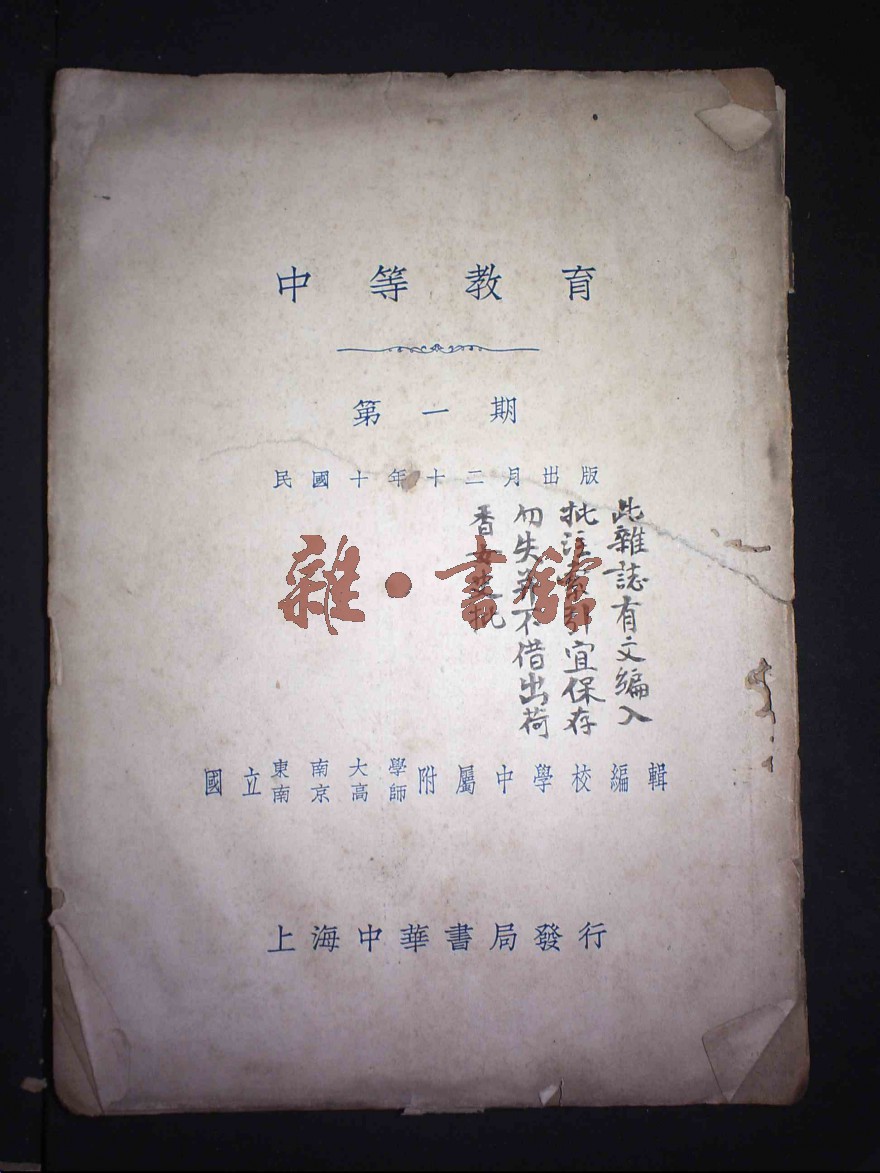 中等教育
第一期
民國十年十二月出版
此雜誌有文編入
批注索引宜保存
勿失并不借出荷
香女史批
雜·書館
國立東南大學南京高師附屬中學校編輯
上海中華書局發行